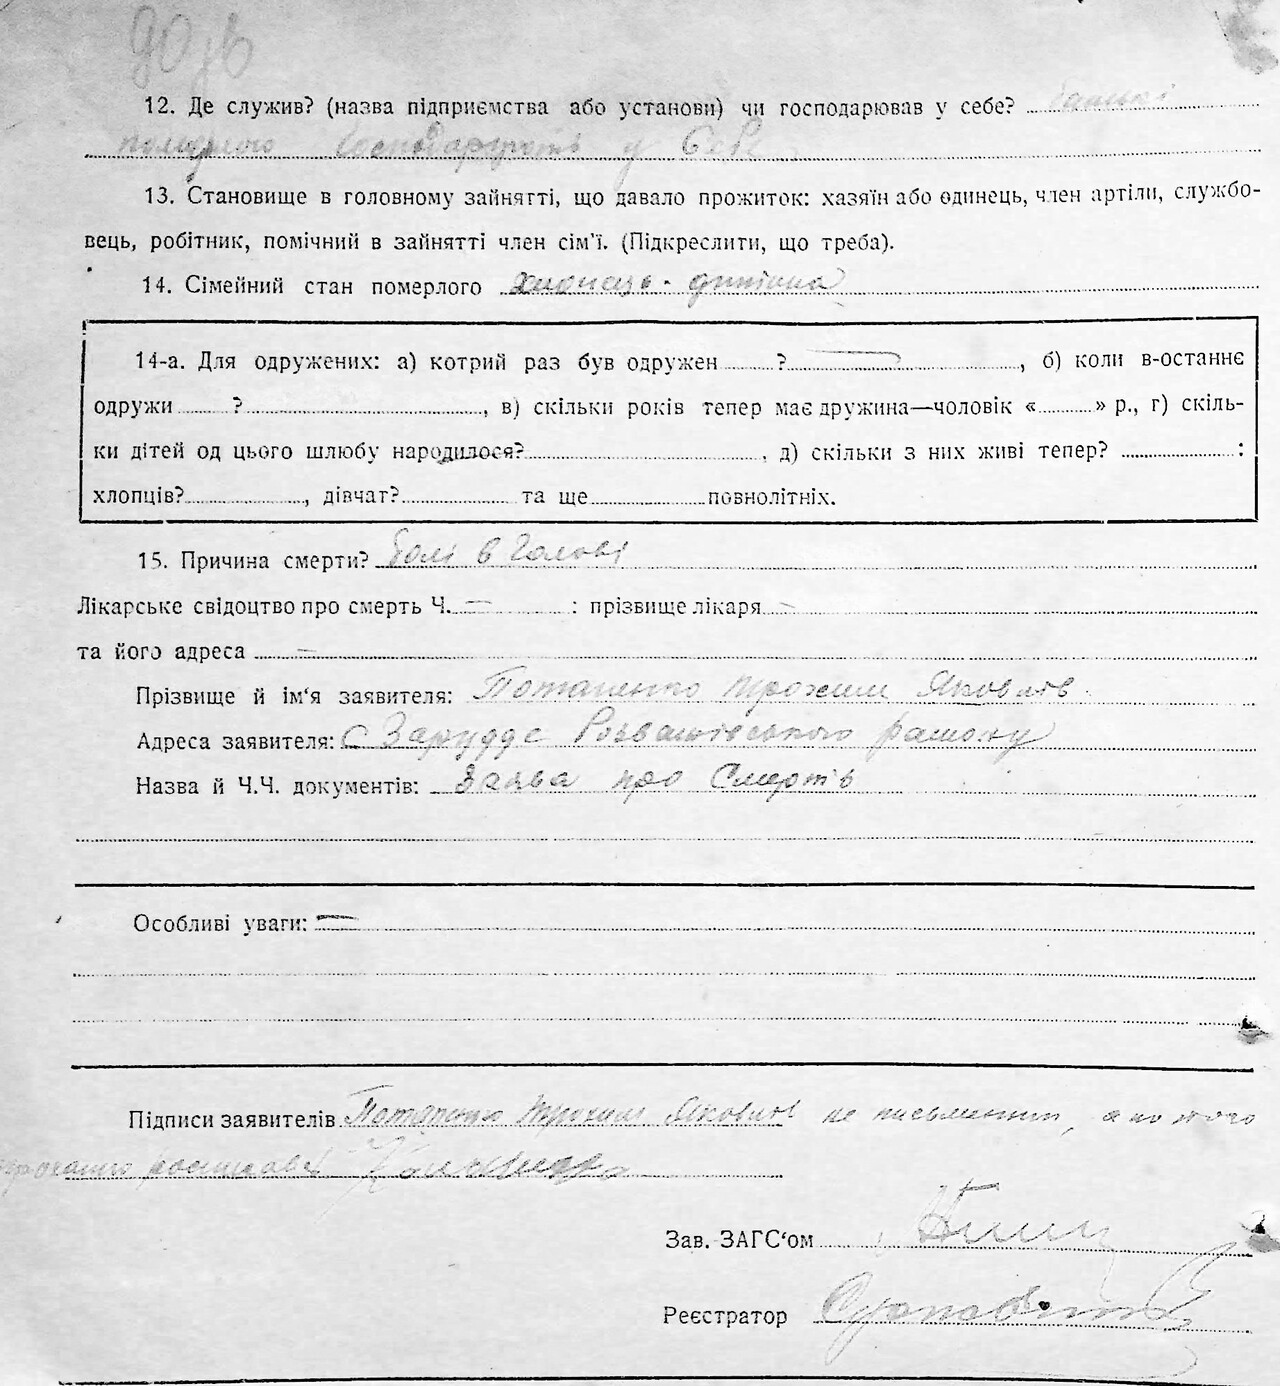 12. Де служив? (назва підприємства або установи) чи господарював у себе? батьки
померлого господарують у себе
13. Становище в головному зайнятті, що давало прожиток: хазяїн або одинець, член артілі, службо-
вець, робітник, помічний в зайнятті член сім'ї. (Підкреслити, що треба).
14. Сімейний стан померлого хлопець - дитина
14-а. Для одружених: а) котрий раз був одружен ? , б) коли в-останнє
одружи ? , в) скільки років тепер має дружина—чоловік « » р., г) скіль-
ки дітей од цього шлюбу народилося? , д) скільки з них живі тепер? :
хлопців? , дівчат? та ще повнолітніх.
15. Причина смерти? болі в голові
Лікарське свідоцтво про смерть Ч. — : прізвище лікаря –
та його адреса —
Прізвище й ім'я заявителя: Потапенко Трохим Яковлів
Адреса заявителя: С Заруддє Розважівського району
Назва й Ч.Ч. документів: Заява про Смерть
Особливі уваги: —
Підписи заявителів Потапенко Трохим Яковлів не письменний, а по його
Зав. ЗАГС'ом
Реєстратор